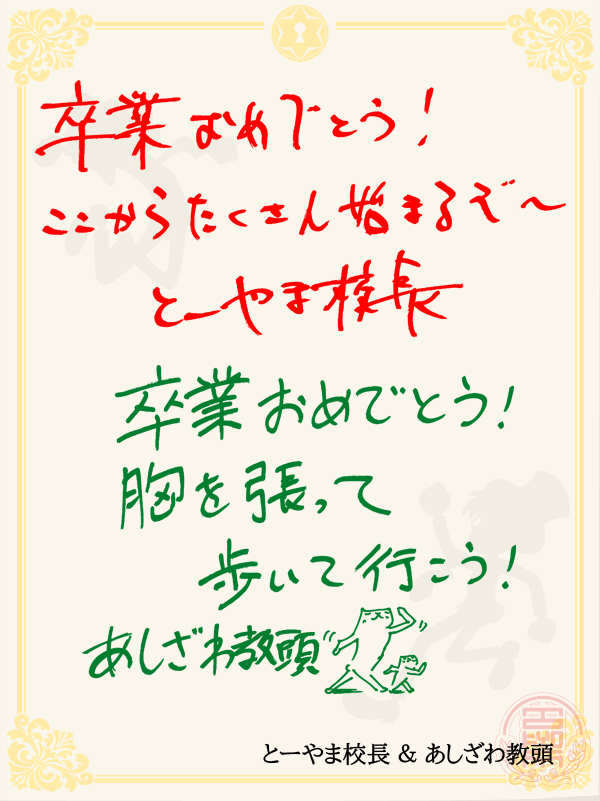 卒業おめでとう!
ここからたくさん始まるぞ〜
とーやま校長
卒業おめでとう!
胸を張って
歩いて行こう!
あしざわ教頭
とーやま校長 & あしざわ教頭